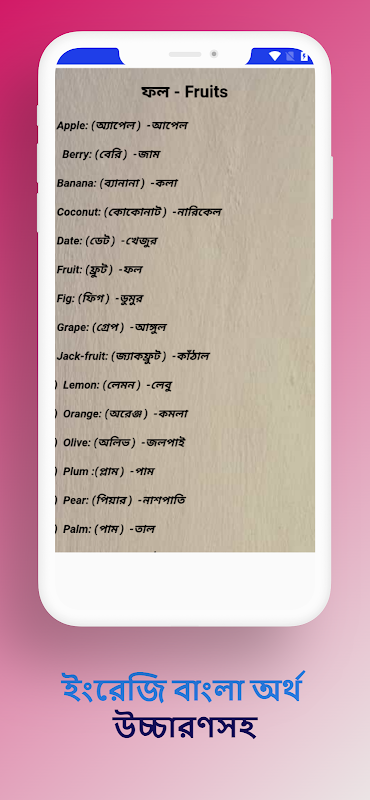 ফল - Fruits
Apple: (অ্যাপেল) -আপেল
Berry: (বেরি) -জাম
Banana: (ব্যানানা) -কলা
Coconut: (কোকোনাট) -নারিকেল
Date: (ডেট) -খেজুর
Fruit: (ফ্রুট) -ফল
Fig: (ফিগ) -ডুমুর
Grape: (গ্রেপ) -আঙ্গুল
Jack-fruit: (জ্যাকফ্রুট) -কাঁঠাল
) Lemon: (লেমন) -লেবু
) Orange: (অরেঞ্জ) -কমলা
) Olive: (অলিভ) -জলপাই
) Plum :(প্লাম) -পাম
) Pear: (পিয়ার) -নাশপাতি
) Palm: (পাম) -তাল
ইংরেজি বাংলা অর্থ
উচ্চারণসহ